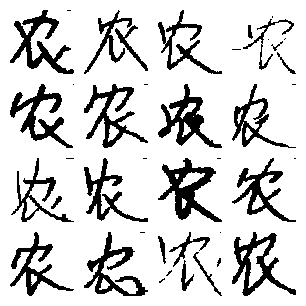 农农农农
农农农农
农农农农
农农农农